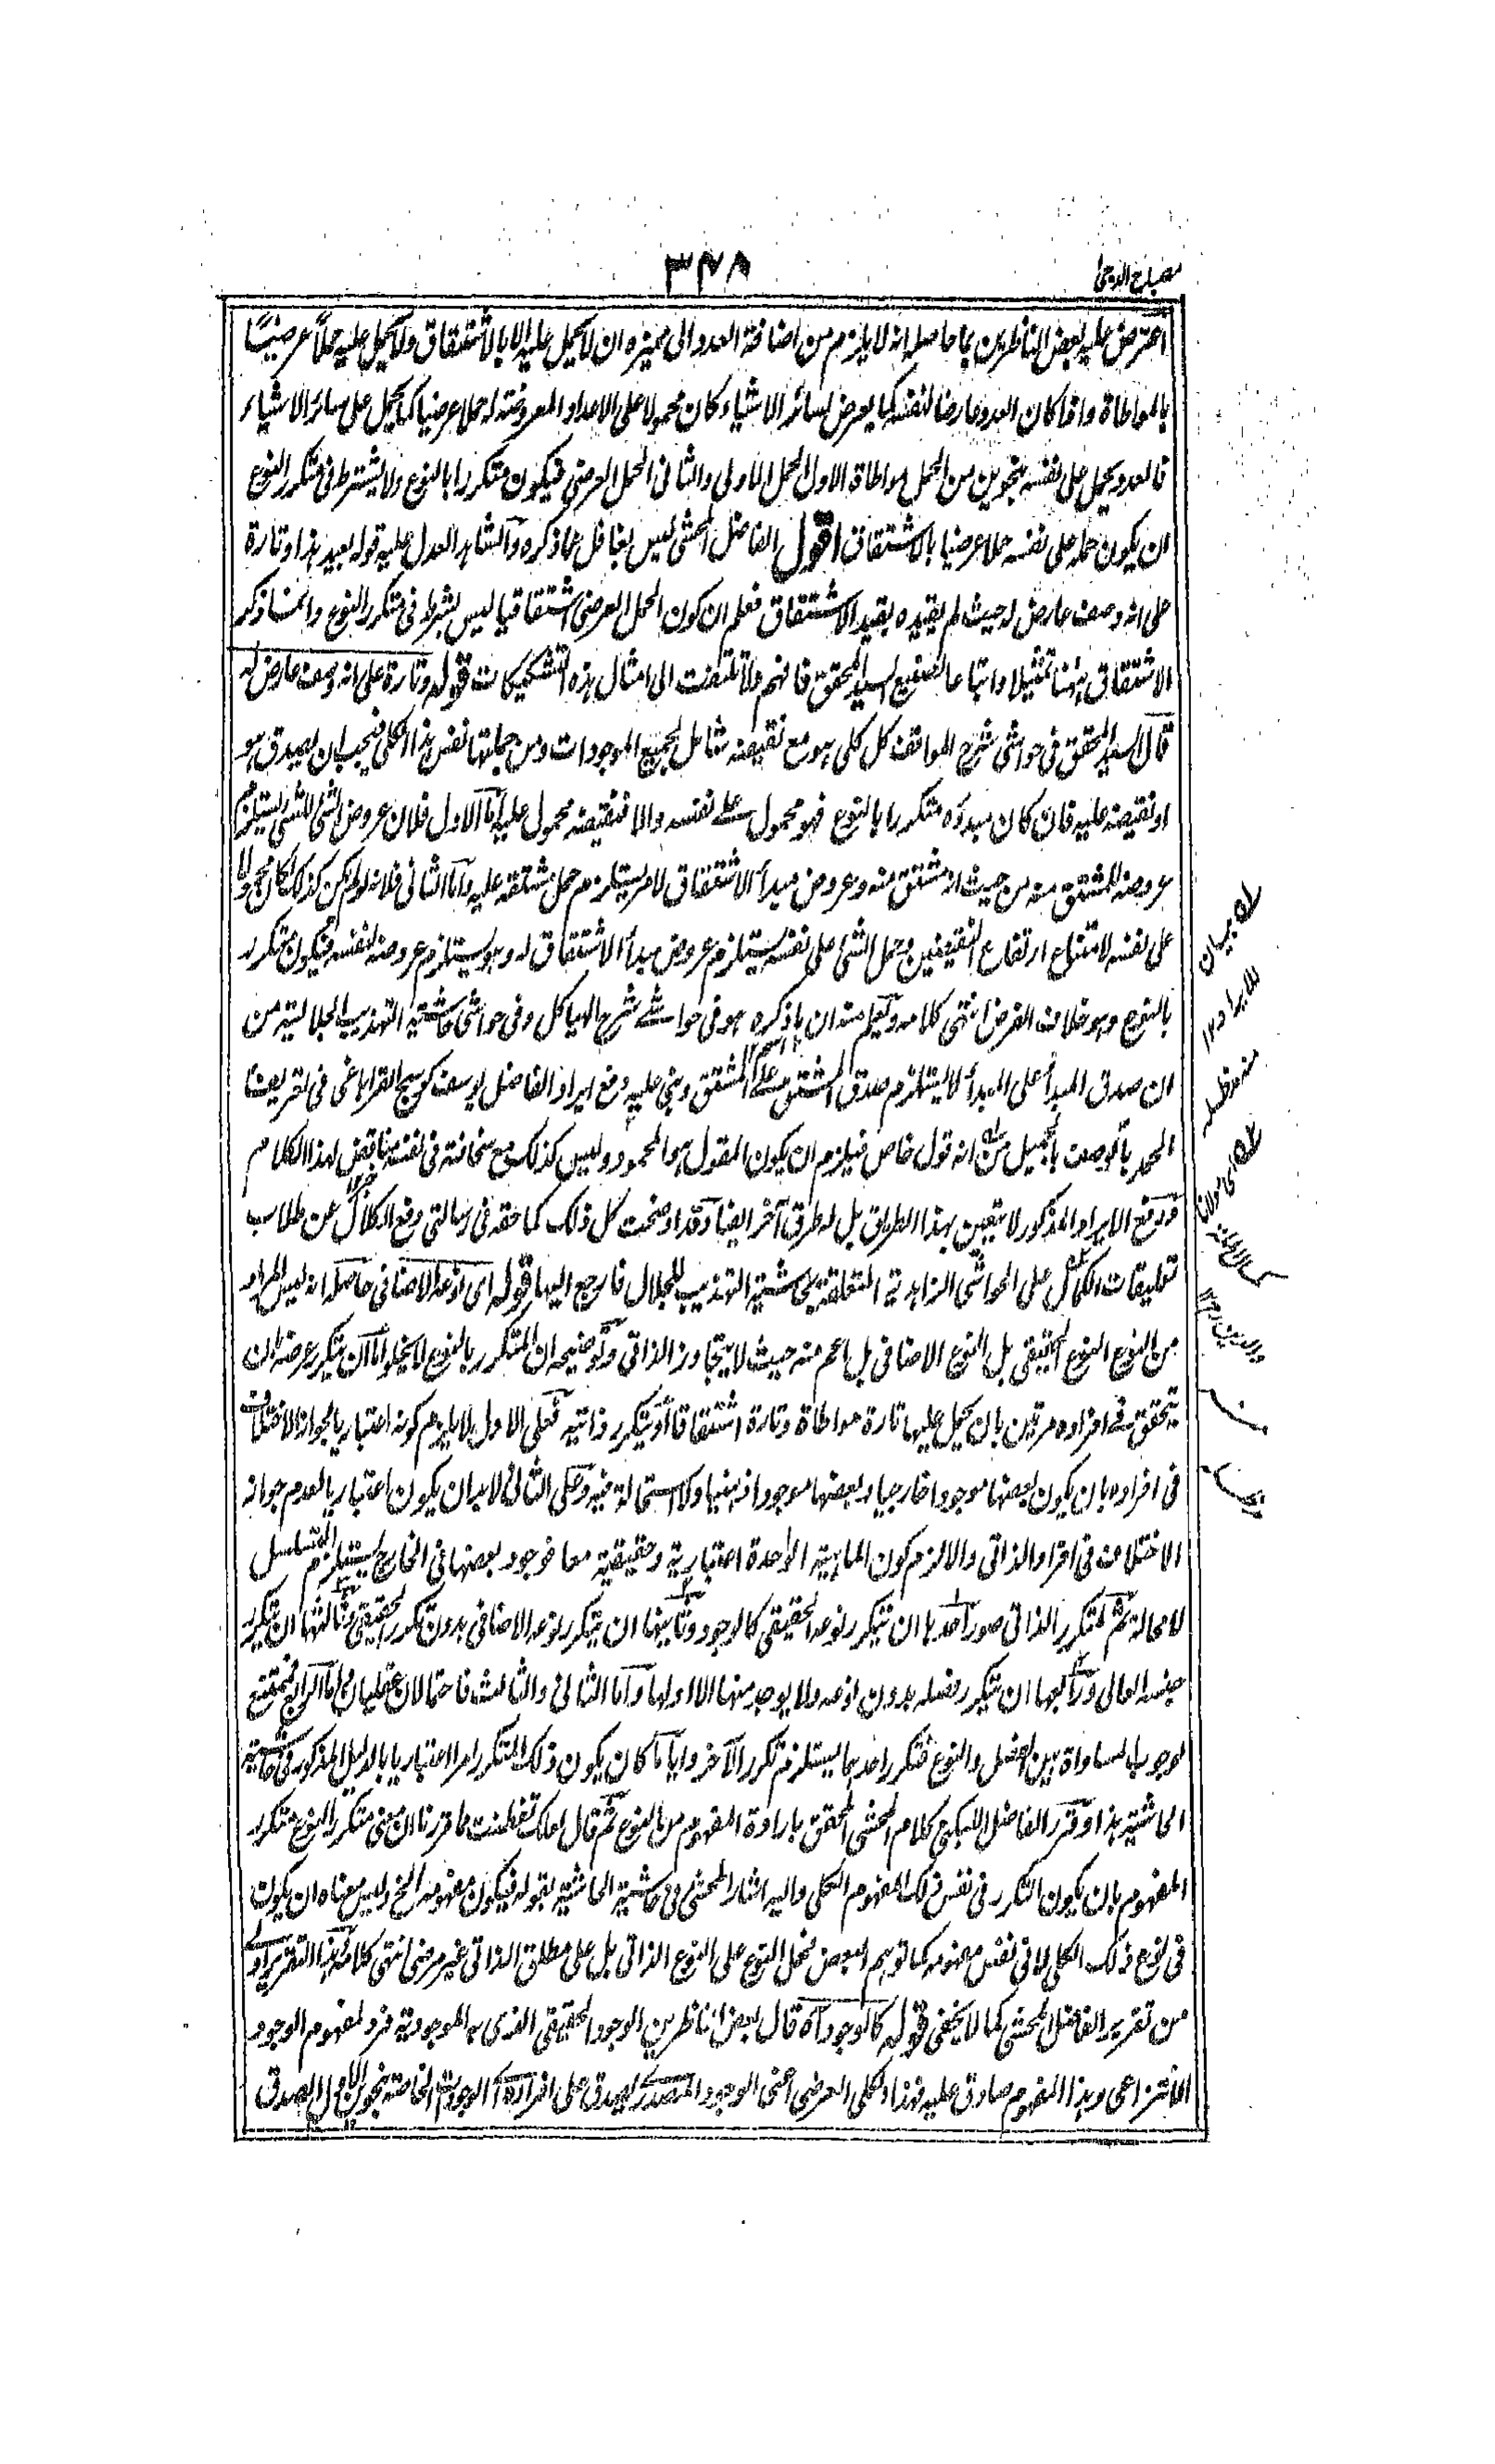 مصباح الدجى
٣٤٨
اعترض عليه بعض الناظرين بما حاصله انه لا يلزم من اضافة العدد الى مميزه ان لا يحمل عليه الا بالاشتقاق ولا يحمل عليه حملاً عرضيًا
بالمواطاة واذا كان العدد عارضا لنفسه كما يعرض لسائر الاشياء كان محمولا على الاعداد المعروضة له حملا عرضيا كما يحمل على سائر الاشياء
فالعدد يحمل على نفسه بنحوين من الحمل مواطاة الاول الحمل الاولى والثانى الحمل العرضى فيكون متكررا بالنوع ولا يشترط فى متكرر النوع
ان يكون حمله على نفسه حملا عرضيا بالاشتقاق اقول الفاضل المحشى ليس بغافل عما ذكره والشاهد العدل عليه قوله بعيد هذا وتارة
على انه وصف عارض له حيث لم يقيده بقيد الاشتقاق فعلم ان كون الحمل العرضى اشتقاقيا ليس بشرط فى متكرر النوع وانما ذكر
الاشتقاق ههنا تمثيلا واتباعا لصنيع السيد المحقق فافهم ولا تلتفت الى امثال هذه التشكيكات قوله وتارة على انه وصف عارض له
قال السيد المحقق فى حواشى شرح المواقف كل كلى هو مع نقيضه شامل لجميع الموجودات ومن جملتها نفس هذا الكلى فيجب ان يصدق هو
او نقيضه عليه فان كان مبدؤه متكررا بالنوع فهو محمول على نفسه والا فنقيضه محمول عليه اما الاول فلان عروض الشئ للشئ يستلزم
عروضه للمشتق منه من حيث انه مشتق منه وعروض مبدأ الاشتقاق لامر يستلزم حمل مشتقه عليه واما الثانى فلانه لو لم يكن كذلك لكان محمولا
على نفسه لامتناع ارتفاع النقيضين وحمل الشئ على نفسه يستلزم عروض مبدأ الاشتقاق له وهو يستلزم عروضه لنفسه فيكون متكرر
بالنوع وهو خلاف الفرض انتهى كلامه ويعلم منه ان ما ذكره هو فى حواشى شرح الهياكل وفى حواشى حاشية التهذيب الجلالية من
ان صدق المبدأ على المبدأ لا يستلزم صدق المشتق على المشتق وبنى عليه دفع ايراد الفاضل يوسف كوسج القراباغى فى تعريف
الحمد بالوصف بالجميل من انه قول خاص فيلزم ان يكون المقول هو المحمود وليس كذلك مع سخافته فى نفسه مناقض لهذا الكلام
ودفع الايراد المذكور لا يتعين بهذا الطريق بل له طرق آخر ايضا وقد اوضحت كل ذلك كما حقه فى رسالتى دفع الكلال عن طلاب
تعليقات الكمال على الحواشى الزاهدية المتعلقة بحاشية التهذيب للجلال فارجع اليها قوله اى نوعه الاضافى حاصله انه ليس المراد
من النوع النوع الحقيقى بل النوع الاضافى بل اعم منه حيث لا يتجاوز الذاتى وتوضيحه ان المتكرر بالنوع لا يخلوا اما ان يتكرر عرضه ان
يتحقق فى افراده مرتين بان يحمل عليها تارة مواطاة وتارة اشتقاقا او يتكرر ذاتيه فعلى الاول لا يلزم كونه اعتباريا لجواز الاختلاف
فى افراده بان يكون بعضها موجودا خارجيا وبعضها موجودا ذهنيا ولا استحالة فيه وعلى الثانى لابد ان يكون اعتباريا لعدم جواز
الاختلاف فى افراد الذاتى والا لزم كون الماهية الواحدة اعتبارية وحقيقية معا فوجود بعضها فى الخارج يستلزم التسلسل
لا محالة ثم لمتكرر الذاتى صور احدها ان يتكرر نوعه الحقيقى كالوجود وثانيها ان يتكرر نوعه الاضافى بدون تكرر الحقيقى وثالثها ان يتكرر
جنسه العالى ورابعها ان يتكرر فصله بدون نوعه ولا يوجد منها الا اولها واما الثانى والثالث فاحتمالان عقليان واما الرابع فممتنع
لوجوب المساواة بين الفصل والنوع فتكرر احدهما يستلزم تكرر الآخر وايا ما كان يكون ذلك المتكرر امرا اعتباريا بالدليل المذكور فى حاشية
الحاشية هذا وقرر الفاضل اللبكنى كلام المحشى المحقق بارادة المفهوم من النوع ثم قال لعلك تفطنت مما قررنا ان معنى متكرر النوع متكرر
المفهوم بان يكون التكرر فى نفس ذلك المفهوم الكلى واليه اشار المحشى فى حاشية الحاشية بقوله فيكون مفهومه الخ وليس معناه ان يكون
فى نوع ذلك الكلى لا فى نفس مفهومه كما توهم البعض فحمل النوع على النوع الذاتى بل على مطلق الذاتى غير مرضى انتهى كلامه وهذا التقرير اولى
من تقرير الفاضل المحشى كما لا يخفى قوله كالوجود آه قال بعض الناظرين الوجود الحقيقى الذى به الموجودية فرد لمفهوم الوجود
الانتزاعى وهذا المفهوم صادق عليه فهذا الكلى العرضى اعنى الوجود المصدرى يصدق على افراده اى الوجودات الخاصة بنحوين الاول الصدق
بيان
للايراد ١٢
منه مدظله
اى مولانا